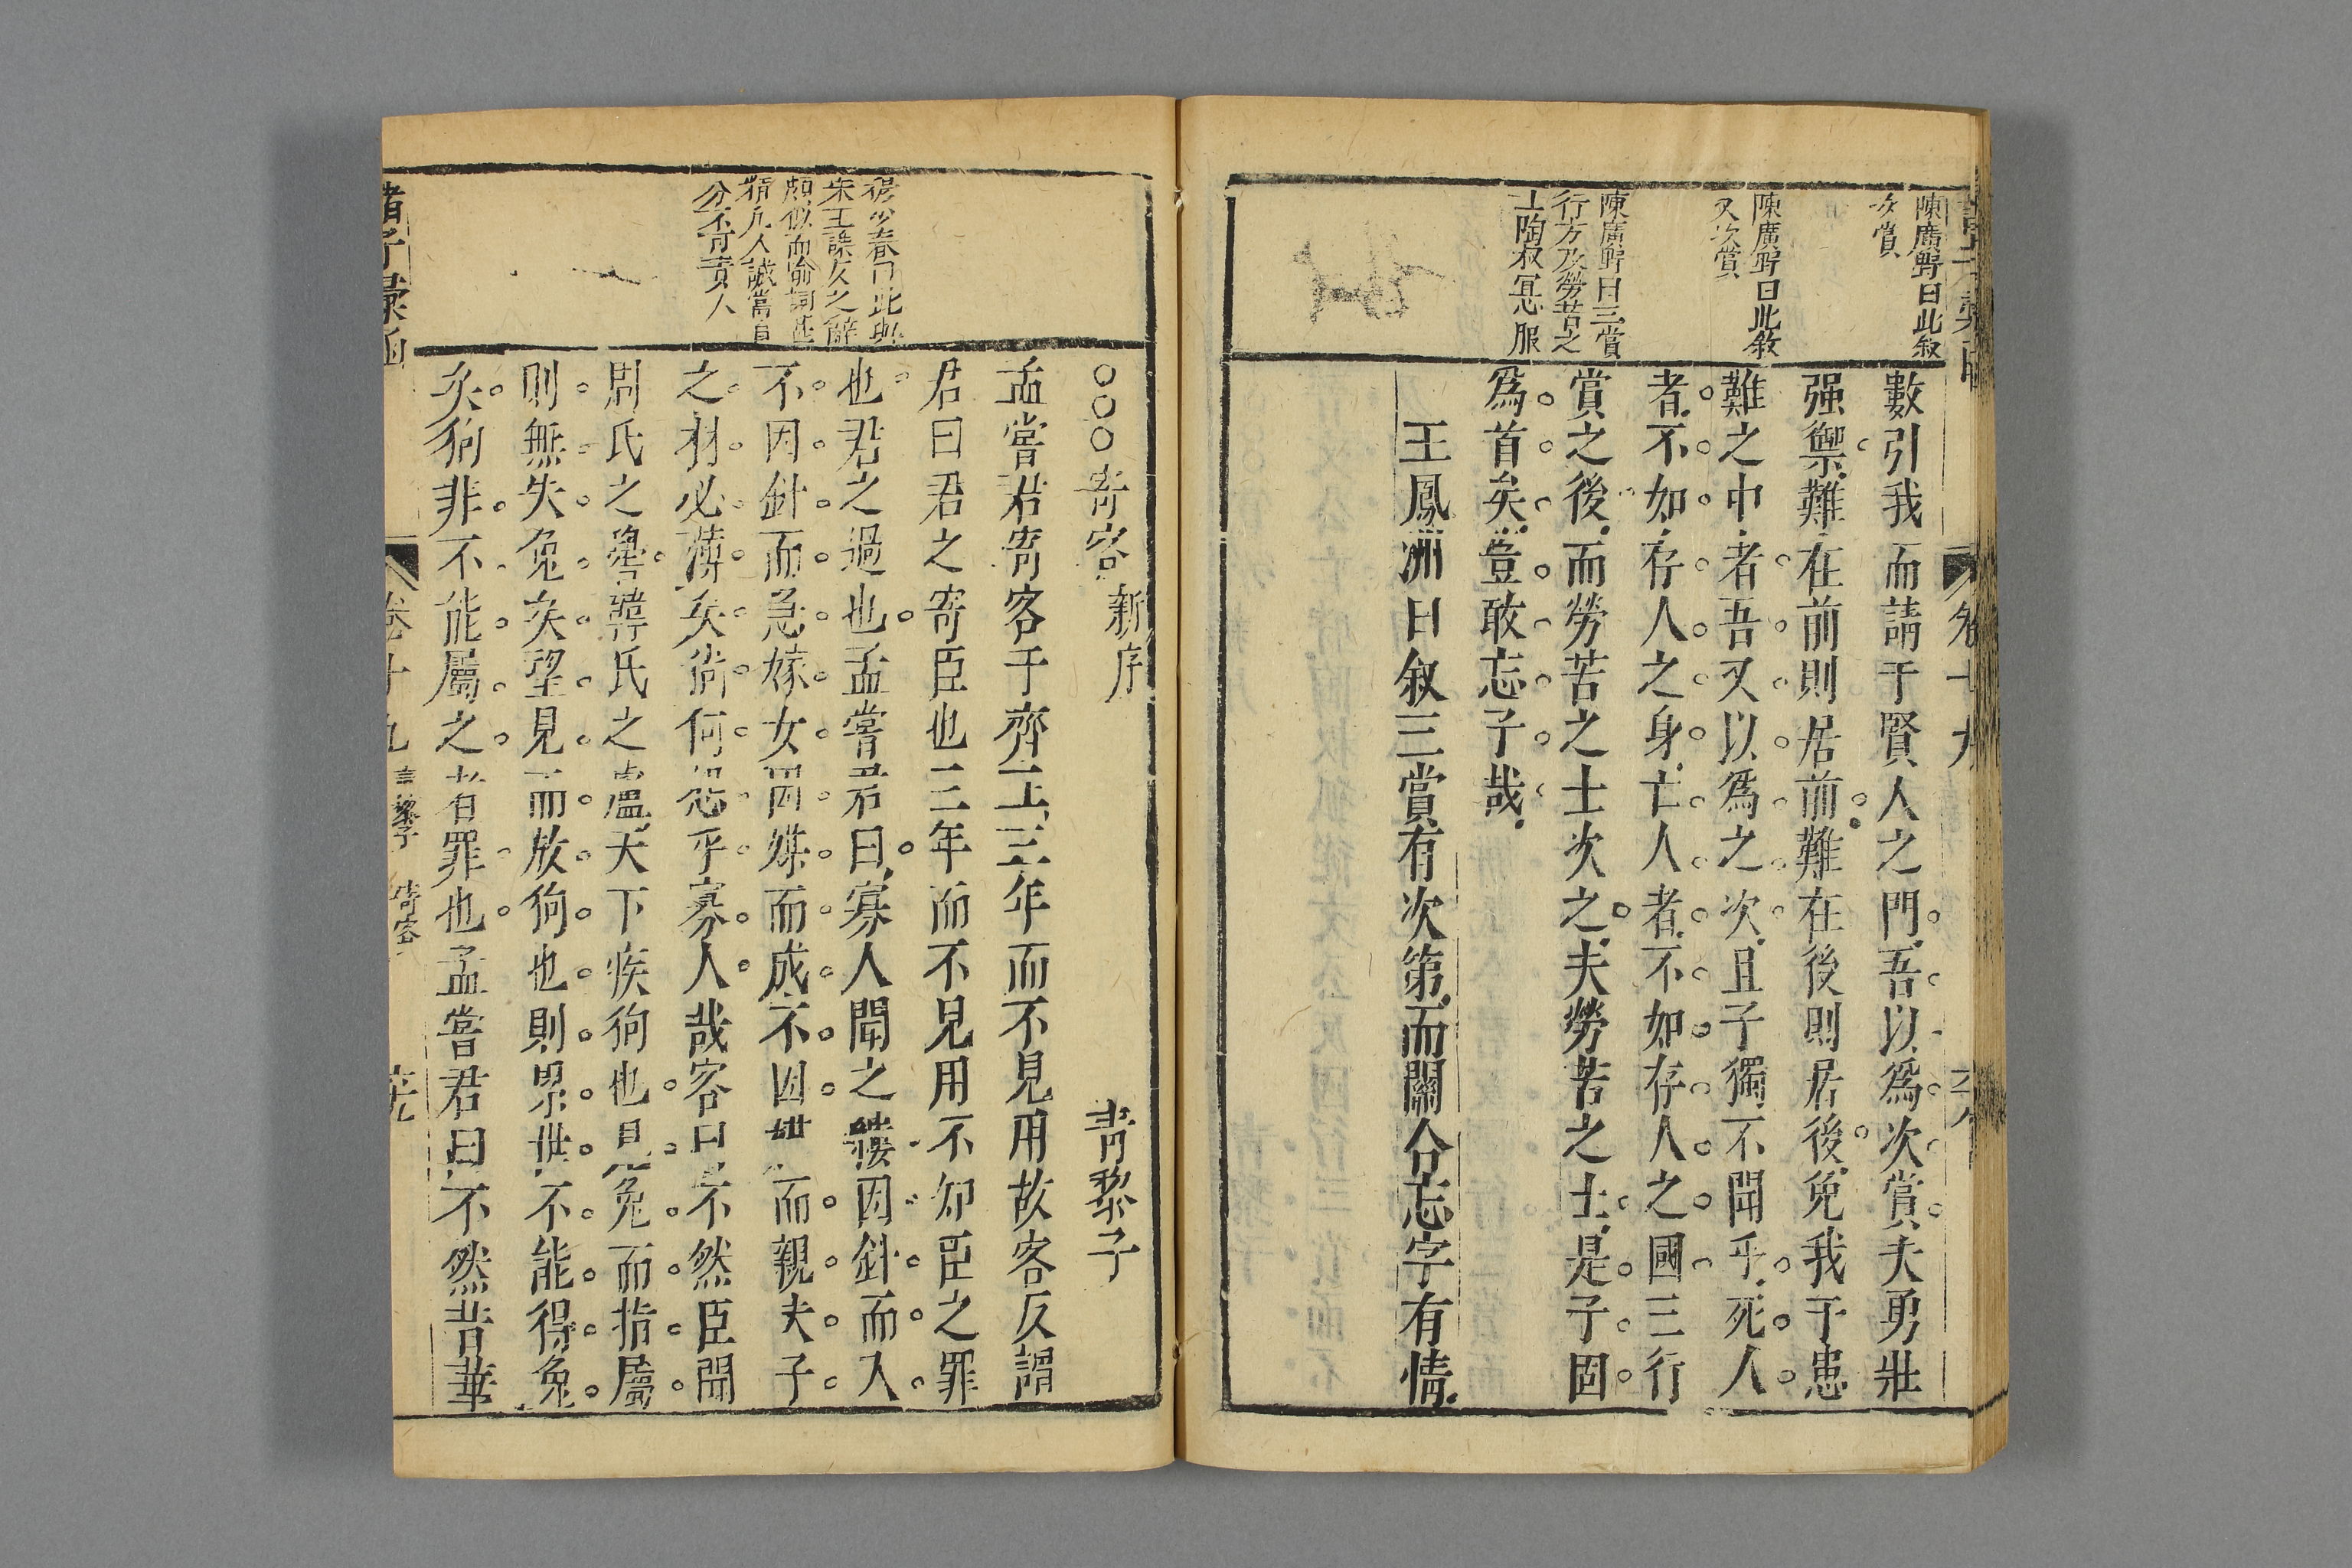 陳廣野曰此敘
次賞
陳廣野曰此敘
又次賞
陳廣野曰三賞
行方及勞苦之
士陶叔冝心服
數引我而請于賢人之門吾以爲次賞夫勇壯
强禦難在前則居前難在後則居後免我于患
難之中者吾又以爲之次且子獨不聞乎死人
者不如存人之身亡人者不如存人之國三行
賞之後而勞苦之士次之夫勞苦之士是子固
爲首矣豈敢忘子哉
王鳳洲曰叙三賞有次第而關合忘字有情
卷十九
○○○寄客 新序 青黎子
孟嘗君寄客于齊王三年而不見用故客反謂
君曰君之寄臣也三年而不見用不知臣之罪
也君之過也孟嘗君曰寡人聞之縷因針而入
不因針而急嫁女因媒而成不因媒而親夫子
之材必薄矣尚何怨乎寡人哉客曰不然臣聞
周氏之嚳韓氏之盧天下疾狗也見兔而指屬
則無失兔矣望見而放狗也則累世不能得兔
矣狗非不能屬之者罪也孟嘗君曰不然昔華
宋玉謀友之辭
頗似而喻詞甚
精凡人誠當自
分不可責人
諸子彙函
卷十九 青黎子 寄客